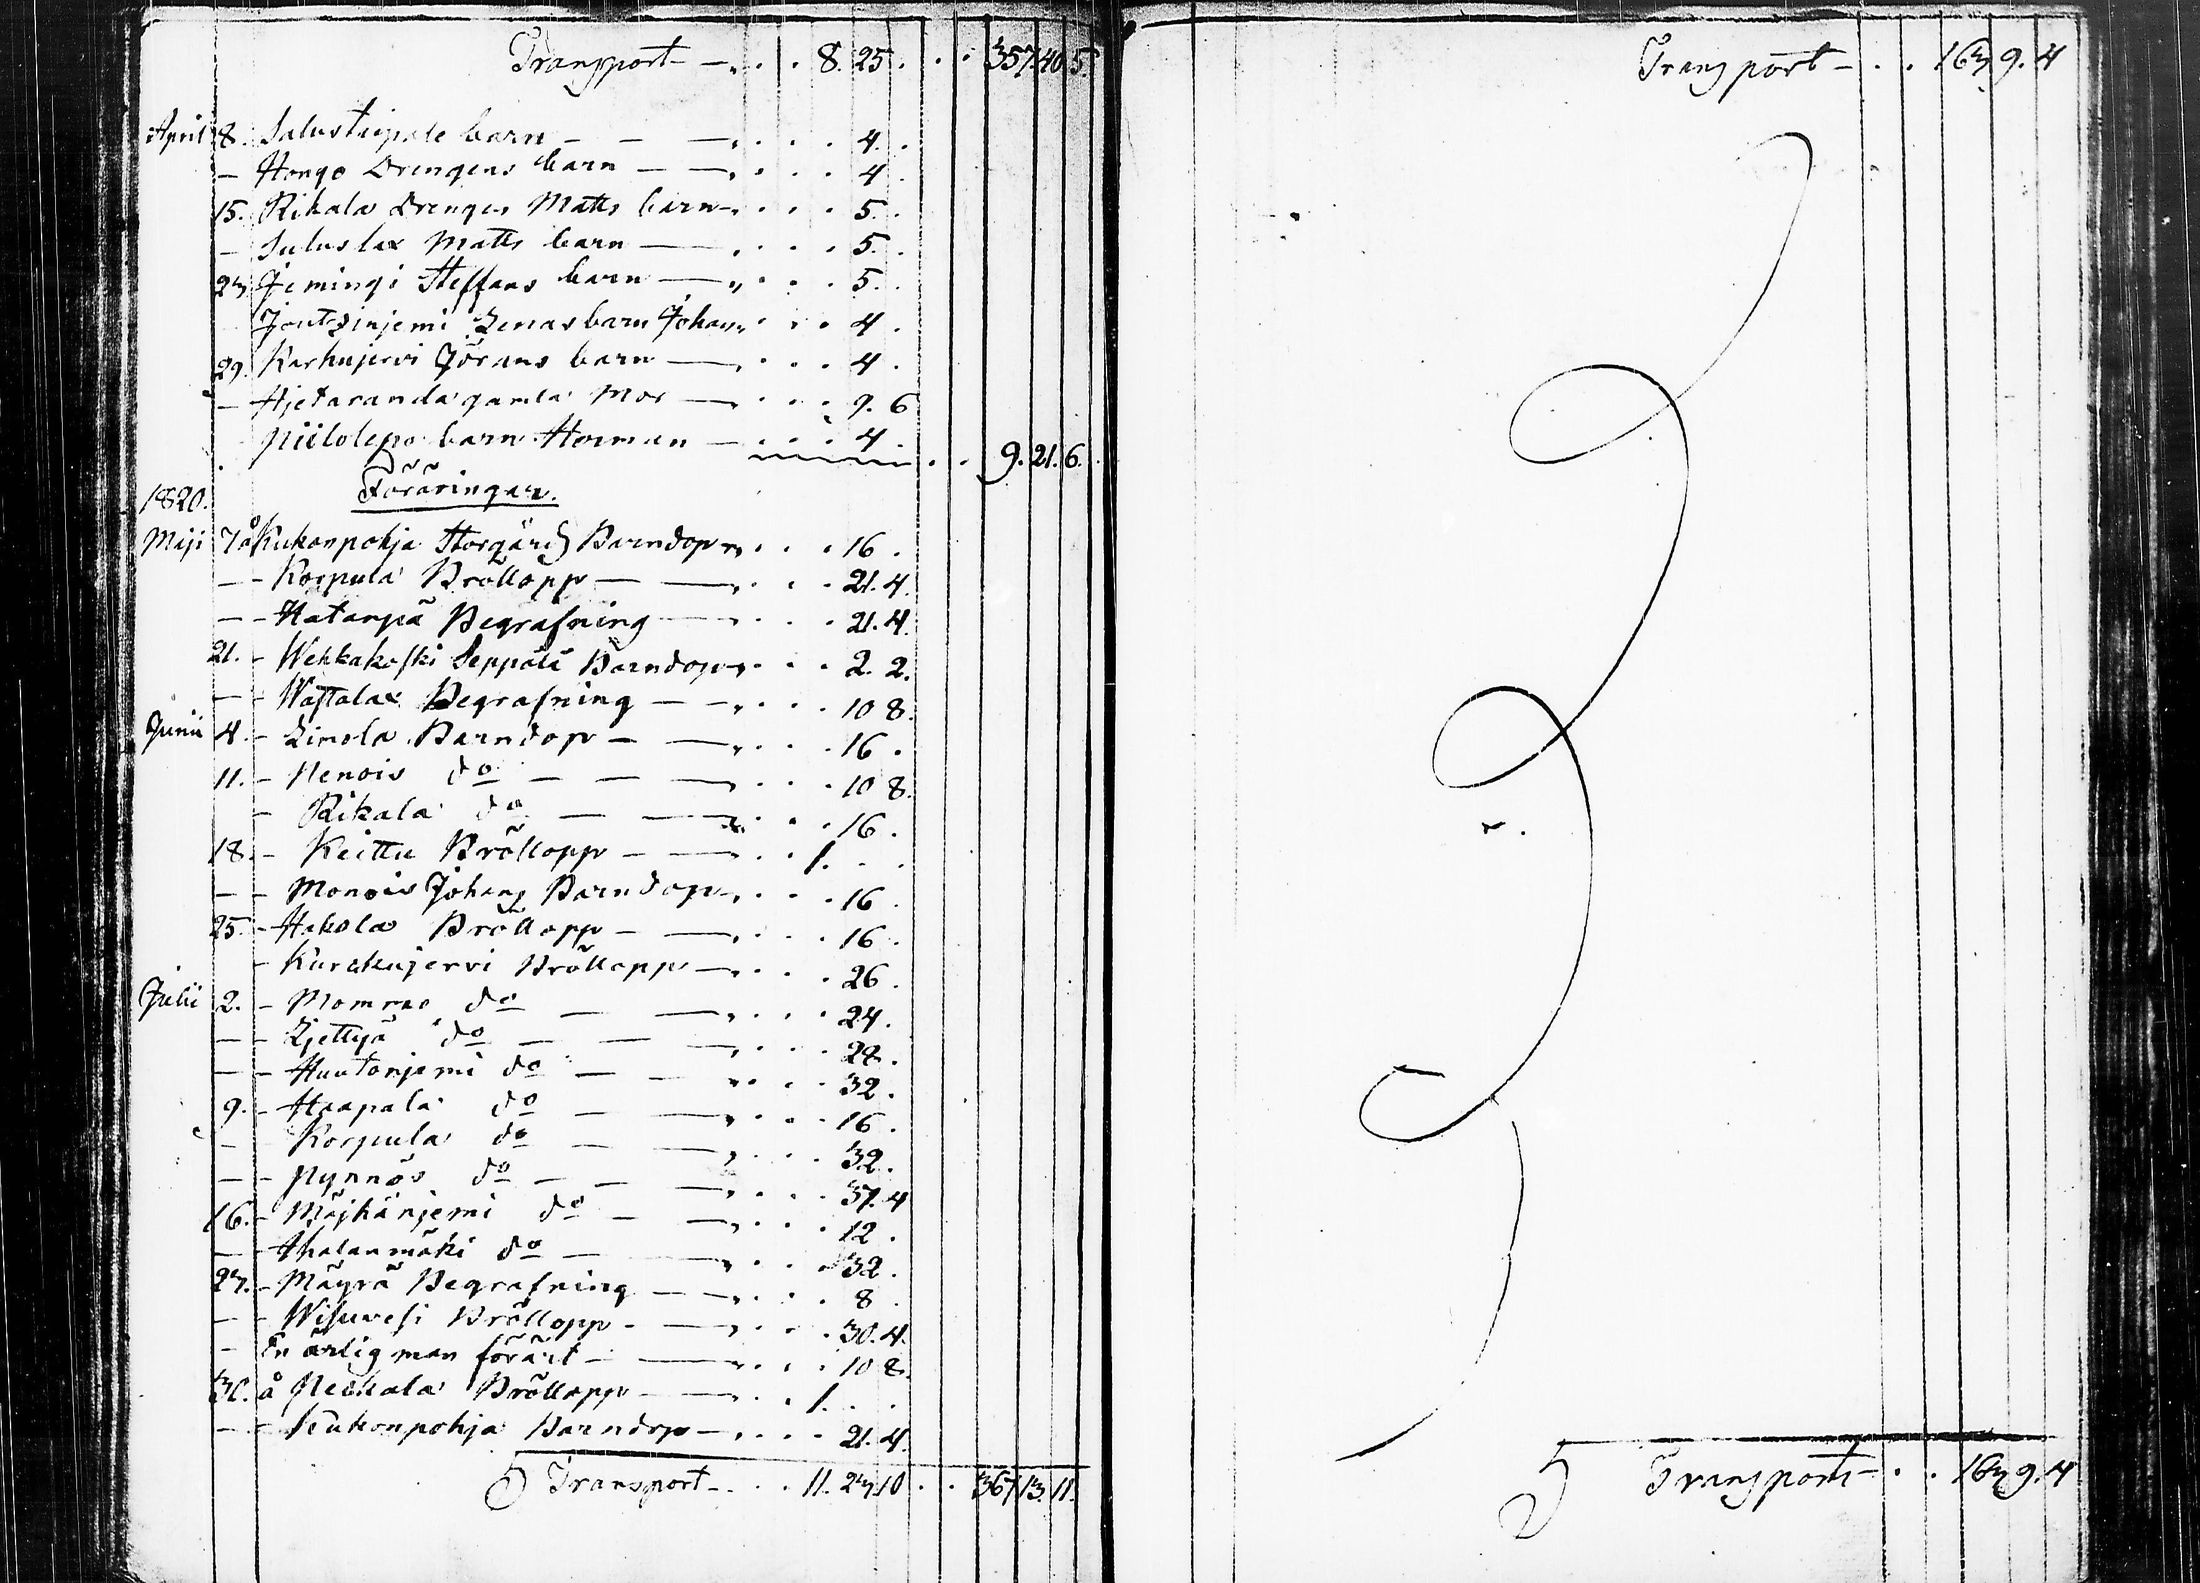 Transport — „ . . 8. 25 . . . 357.40.5.
April 8. Salustaipale barn — — — „ . . . 4. .
— Hongo Drengens barn — — „ . . . 4 .
15. Rikala Drenges Matts barn — „ . . . 5. .
— Suluslax Matts barn — „ . . . 5. .
23 Jemingi Steffans barn — „ . . . 5. .
Joutzinjemi Zenasbarn Johan „ . . . 4 .
29. Karhujervi Jörans barn — „ . . . 4 .
— Hjetaranda gamla Mor — „ . . . 9. 6
Niilolepo barn Herman — . . . 4 . . . 9. 21. 6.
Föräringar.
1820.
Maji 7 å Kukonpohja Storgårds Barndop „ . . . 16 .
— - Korpula Bröllopp — — „ . . . 21. 4.
— - Hatanpä Begrafning — „ . . . 21. 4.
21. - Wehkakoski Seppälä Barndop „ . . . 2. 2.
— - Wattalax Begrafning — — „ . . . 10 8.
Junii 4. - Limola Barndop — — „ . . . 16 .
11. - Nenois do — — — „ . . . 10 8.
- Rikala do — — „ . . . 16 .
18. - Keittu Bröllopp — — „ . . 1. . .
— - Monois Johans Barndop „ . . . 16 .
25. - Hakola Bröllopp — — „ . . . 16 .
- Kurckujervi Bröllopp — „ . . . 26 .
Julii 2. - Mommo do — — „ . . . 24 .
— - Ljettyä do — — — „ . . . 28 .
— - Huutonjemi do — — „ . . . 32 .
9. - Haapala do — — „ . . . 16 .
— Korpula do — — „ . . . 32 .
— - Nynnös do — — — „ . . . 37. 4
16. - Mäjkänjemi do — — „ . . . 12 .
— - Ahalanmäki do — — „ . . . 32 .
23. - Mäyrä Begrafning — — „ . . . 8 .
— - Wisuvesi Bröllopp - — „ . . . 30. 4.
— En ärlig man förärt — — „ . . . 10 8.
30. å Neckala Bröllopp — „ . . 1. . .
— - Kukonpohja Barndop — „ . . . 21. 4.
Transport — . . . 11. 23. 10 . . 367.13.11.
Transport — . . 163 9. 4
Transport — . . 163 9. 4